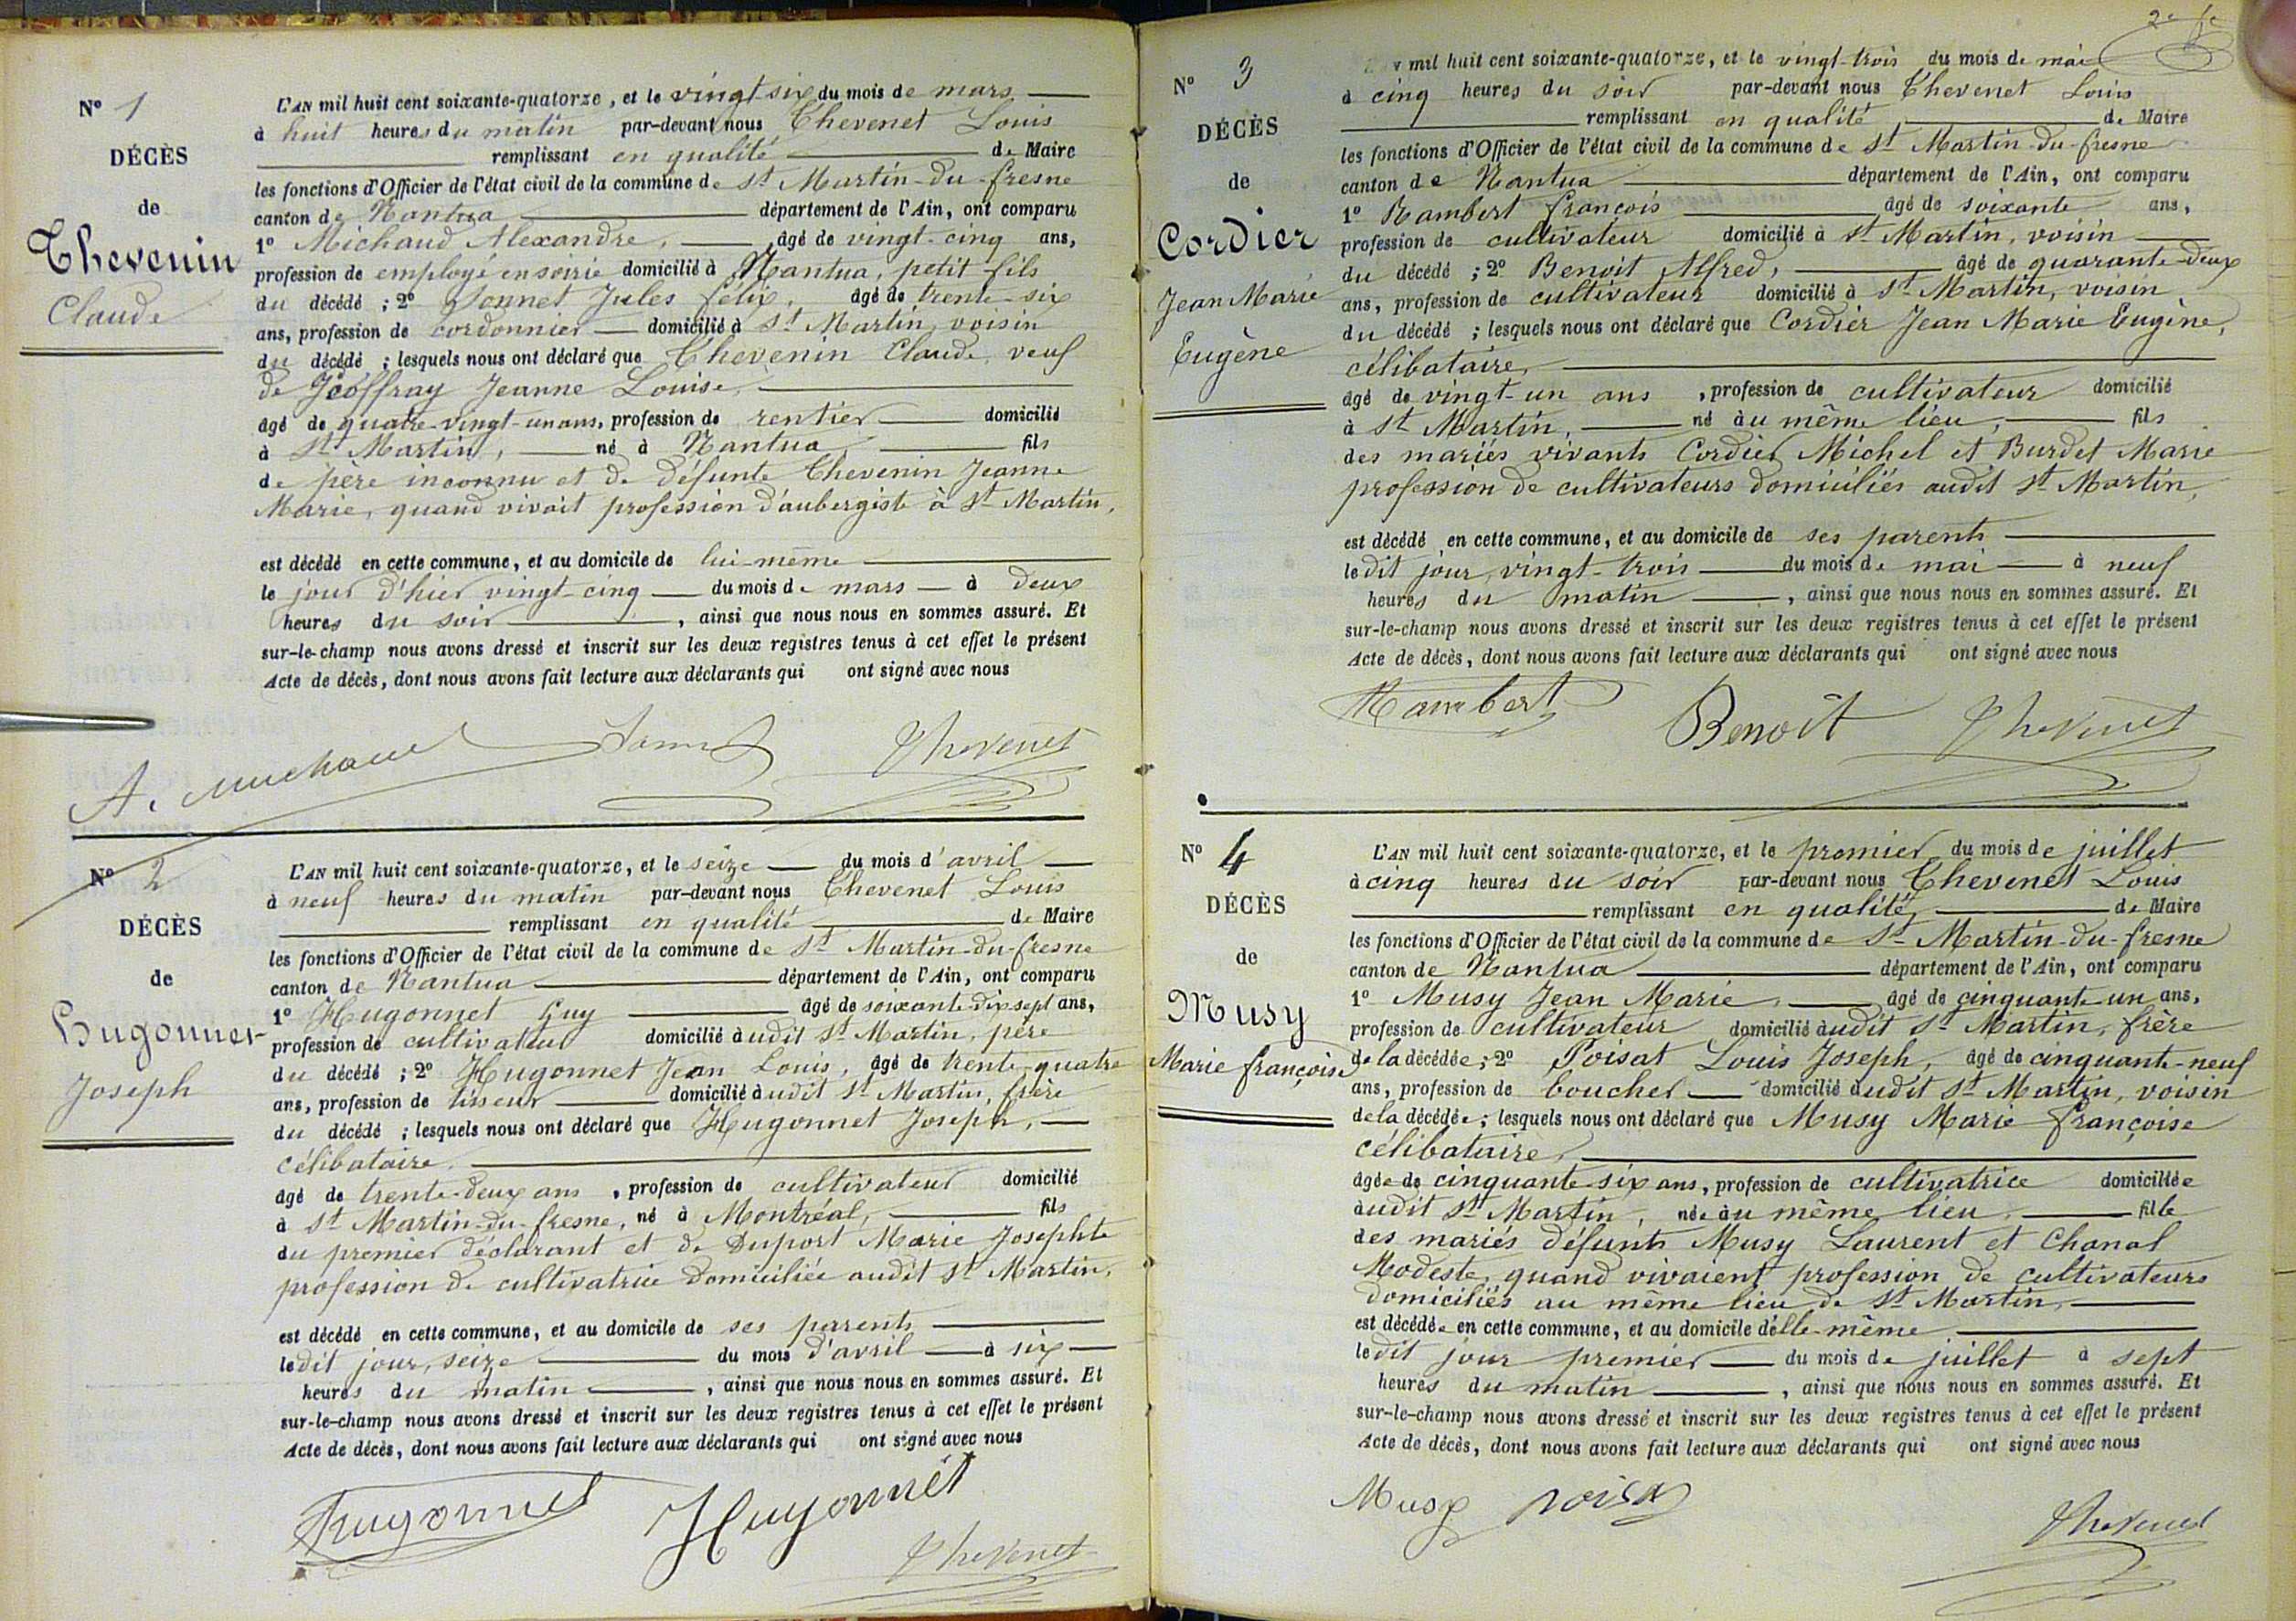 N° 1
DÉCÈS
de
Thevenin
Claude
L'AN mil huit cent soixante-quatorze, et le vingt-six du mois de mars
à huit heures du matin par-devant nous Thevenet Louis
remplissant en qualité de Maire
les fonctions d'Officier de l'état civil de la commune de St Martin-du-fresne
canton de Nantua département de l'Ain, ont comparu
1° Michaud Alexandre, âgé de vingt-cinq ans,
profession de employé en soirie domicilié à Nantua, petit fils
du décédé ; 2° Sonnet Jules félix, âgé de trente-six
ans, profession de cordonnier domicilié à St Martin, voisin
du décédé ; lesquels nous ont déclaré que Thevenin Claude, veuf
de Jeoffray Jeanne Louise,
âgé de quatre-vingt-un ans, profession de rentier domicilié
à St Martin, né à Nantua fils
de père inconnu et de défunte Thevenin Jeanne
Marie, quand vivait profession d'aubergiste à St Martin,
est décédé en cette commune, et au domicile de lui-même
le jour d'hier vingt-cinq du mois de mars à deux
heures du soir, ainsi que nous nous en sommes assuré. Et
sur-le-champ nous avons dressé et inscrit sur les deux registres tenus à cet effet le présent
Acte de décès, dont nous avons fait lecture aux déclarants qui ont signé avec nous
A. Michaud Thevenet
N° 2
DÉCÈS
de
Hugonnet
Joseph
L'AN mil huit cent soixante-quatorze, et le seize du mois d'avril
à neuf heures du matin par-devant nous Thevenet Louis
remplissant en qualité de Maire
les fonctions d'Officier de l'état civil de la commune de St Martin-du-fresne
canton de Nantua département de l'Ain, ont comparu
1° Hugonnet Guy âgé de soixante-dix-sept ans,
profession de cultivateur domicilié audit St Martin, père
du décédé ; 2° Hugonnet Jean Louis, âgé de trente-quatre
ans, profession de tisseur domicilié audit St Martin, frère
du décédé ; lesquels nous ont déclaré que Hugonnet Joseph,
célibataire,
âgé de trente-deux ans, profession de cultivateur domicilié
à St Martin-du-fresne, né à Montréal, fils
du premier déclarant et de Duport Marie Josephte
profession de cultivatrice domiciliée audit St Martin,
est décédé en cette commune, et au domicile de ses parents
ledit jour, seize du mois d'avril à six
heures du matin, ainsi que nous nous en sommes assuré. Et
sur-le-champ nous avons dressé et inscrit sur les deux registres tenus à cet effet le présent
Acte de décès, dont nous avons fait lecture aux déclarants qui ont signé avec nous
hugonnet Hugonnet
Thevenet
N° 3
DÉCÈS
de
Cordier
Jean Marie
Eugène
mil huit cent soixante-quatorze, et le vingt-trois du mois de mai
à cinq heures du soir par-devant nous Thevenet Louis
remplissant en qualité de Maire
les fonctions d'Officier de l'état civil de la commune de St Martin-du-fresne
canton de Nantua département de l'Ain, ont comparu
1° Rambert françois âgé de soixante ans,
profession de cultivateur domicilié à St Martin, voisin
du décédé ; 2° Benoit Alfred, âgé de quarante-deux
ans, profession de cultivateur domicilié à St Martin, voisin
du décédé ; lesquels nous ont déclaré que Cordier Jean Marie Eugène,
célibataire,
âgé de vingt-un ans, profession de cultivateur domicilié
à St Martin, né au même lieu, fils
des mariés vivants Cordier Michel et Burdet Marie
profession de cultivateurs domiciliés audit St Martin,
est décédé en cette commune, et au domicile de ses parents
ledit jour, vingt-trois du mois de mai à neuf
heures du matin, ainsi que nous nous en sommes assuré. Et
sur-le-champ nous avons dressé et inscrit sur les deux registres tenus à cet effet le présent
Acte de décès, dont nous avons fait lecture aux déclarants qui ont signé avec nous
Rambert Benoit Thevenet
N° 4
DÉCÈS
de
Musy
Marie françoise
L'AN mil huit cent soixante-quatorze, et le premier du mois de juillet
à cinq heures du soir par-devant nous Thevenet Louis
remplissant en qualité de Maire
les fonctions d'Officier de l'état civil de la commune de St Martin-du-fresne
canton de Nantua département de l'Ain, ont comparu
1° Musy Jean Marie, âgé de cinquante-un ans,
profession de cultivateur domicilié audit St Martin, frère
de la décédée ; 2° Poisat Louis Joseph, âgé de cinquante-neuf
ans, profession de boucher domicilié audit St Martin, voisin
de la décédée ; lesquels nous ont déclaré que Musy Marie françoise
célibataire,
âgée de cinquante-six ans, profession de cultivatrice domiciliée
audit St Martin, née au même lieu, fille
des mariés défunts Musy Laurent et Chanal
Modeste, quand vivaient profession de cultivateurs
domiciliés au même lieu de St Martin,
est décédée en cette commune, et au domicile d'elle-même
ledit jour premier du mois de juillet à sept
heures du matin, ainsi que nous nous en sommes assuré. Et
sur-le-champ nous avons dressé et inscrit sur les deux registres tenus à cet effet le présent
Acte de décès, dont nous avons fait lecture aux déclarants qui ont signé avec nous
Musy Poisat
Thevenet